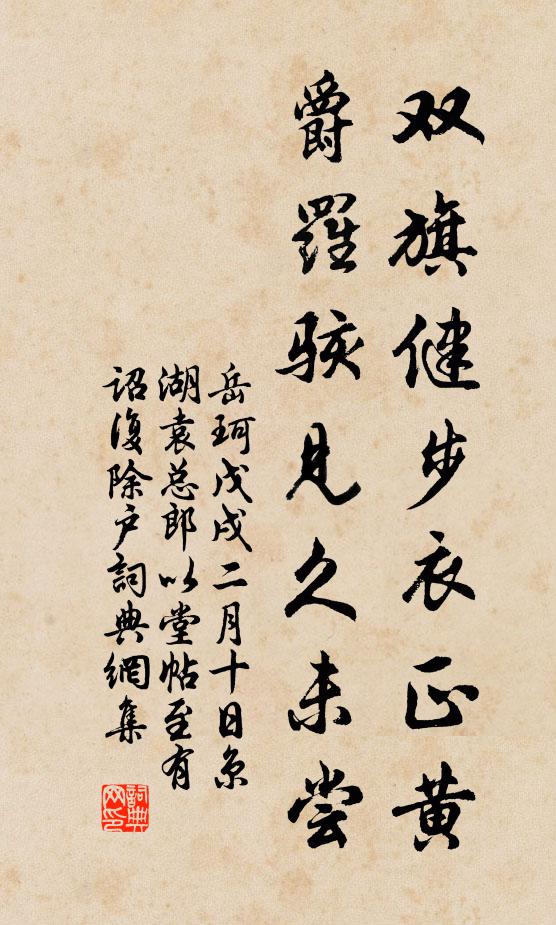 双旗健步衣正黄
爵羅駭見久未尝
岳珂戊戌二月十日京
湖袁总郎以堂帖至有
诏復除户詞典網集
詞典网印